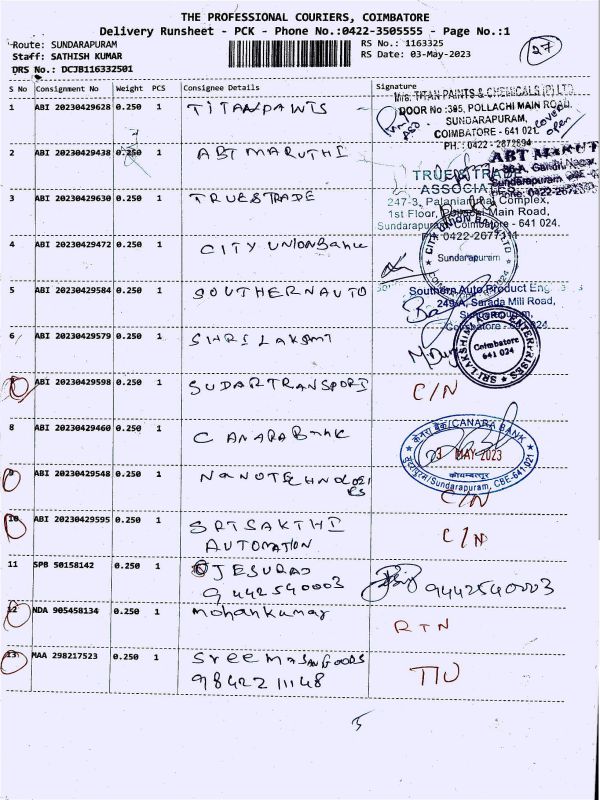 THE PROFESSIONAL COURIERS, COIMBATORE
Delivery Runsheet - PCK - Phone No.:0422-3505555 - Page No.:1
Route: SUNDARAPURAM
Staff: SATHISH KUMAR
DRS No.: DCJB116332501
RS No.: 1163325
RS Date: 03-May-2023
27
S No Consignment No Weight PCS Consignee Details Signature
M/s. TITAN PAINTS & CHEMICALS (P) LTD.
DOOR No:395, POLLACHI MAIN ROAD,
SUNDARAPURAM,
COIMBATORE - 641 021.
PH.: 0422 - 2672694
cover open
1 ABI 20230429628 0.250 1 TITANPAINTS
2 ABI 20230429438 0.250 1 ABT MARUTHI
ABT MARUT
Gandhi Nagar,
Sundarapuram
Phone: 0422-26
3 ABI 20230429630 0.250 1 TRUESTRADE
TRUE TRADE
ASSOCIATES
247-3, Palaniammal Complex,
1st Floor, Pollachi Main Road,
Sundarapuram, Coimbatore - 641 024.
PH 0422-2677
4 ABI 20230429472 0.250 1 CITY UNION Bank
CITY UNION BANK LTD
Sundarapuram
5 ABI 20230429584 0.250 1 SOUTHERNAUTO
Southern Auto Product Eng
249-A, Sarada Mill Road,
Sundarapuram,
Coimbatore - 641 024.
6 ABI 20230429579 0.250 1 SHRI LAKSMI
SRI LAKSHMI AGRO ENTERPRISES
Coimbatore
641 024
7 ABI 20230429598 0.250 1 SUDARTRANSPORT C/N
8 ABI 20230429460 0.250 1 CANARA BANK
केनरा बैंक/CANARA BANK
3 MAY 2023
कोयम्बत्तूर
सुन्दरापुरम/Sundarapuram, CBE-641 021
9 ABI 20230429548 0.250 1 NANOTECHNOLOGI
ES
C/N
10 ABI 20230429595 0.250 1 SRI SAKTHI
AUTOMATION
C/N
11 SPB 50158142 0.250 1 JESURAJ
9442540003
9442540003
12 NDA 905458134 0.250 1 mohankumar RTN
13 MAA 298217523 0.250 1 Sree
9842211148